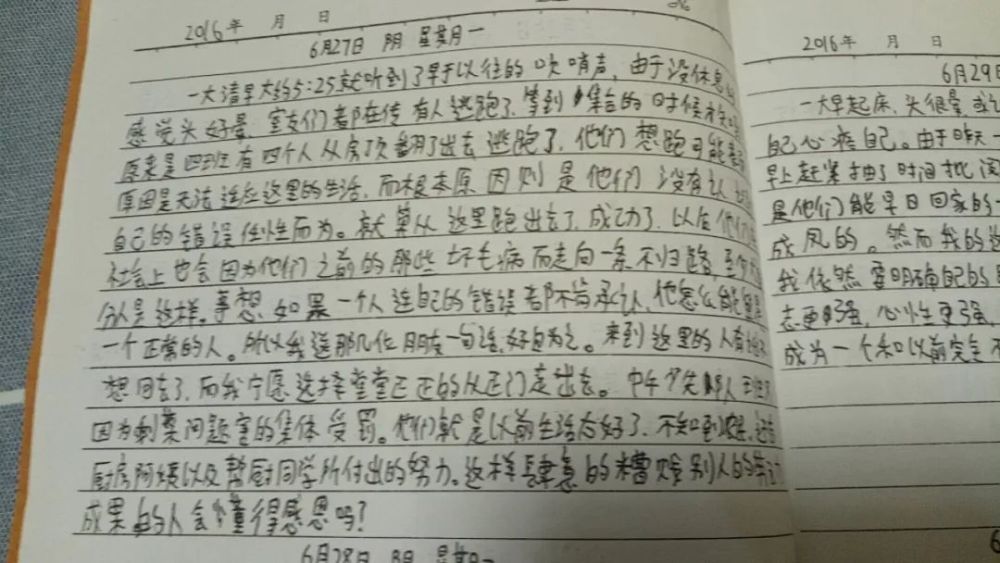 2016年 月 日
6月27日 阴 星期一
一大清早大约5:25就听到了早于以往的吹哨声,由于没休息
感觉头好晕,室友们都在传有人逃跑了,等到集合的时候才
原来是四班有四个人从房顶翻了出去逃跑了,他们想跑可能
原因是无法适应这里的生活,而根本原因则是他们没有认
自己的错误任性而为。就算从这里跑出去了,成功了,以后他们
社会上也会因为他们之前的那些坏毛病而走向一条不归路,至少
分人是这样。事想如果一个人连自己的错误都不肯承认,他怎么能
一个正常的人。所以我送那几位朋友一句话,好自为之。来到这里的人有
想回去了,而我宁愿选择堂堂正正的从正门走出去。中午
因为剩菜问题室的集体受罚。他们就是以前生活太好了,不知
厨房阿姨以及帮厨同学所付出的努力。这样肆意的糟贱别人的劳动
成果的人会懂得感恩吗?
6月28日 阴 星期
2016年 月 日
6月29日
一大早起床,头很晕,
自己心疼自己。由于昨天
早上赶紧抽了时间
是他们能早日回家的
成风的。然而我的
我依然要明确自己的
志更坚强,心性更强,
成为一个和以前完全不